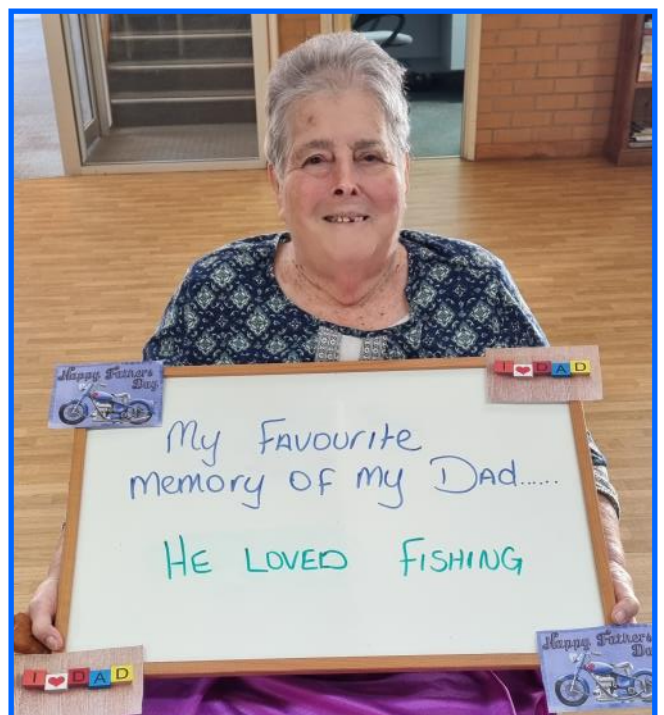 Happy Father's
Day
I ❤ DAD
My Favourite
memory of my Dad......
He Loved Fishing
I ❤ DAD
Happy Father's
Da